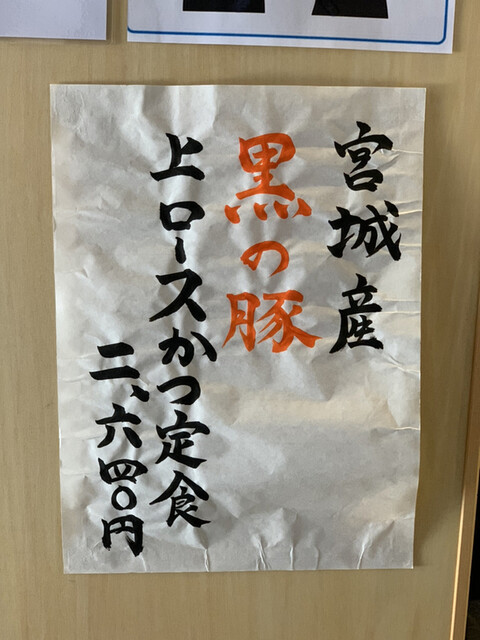 宮城産
黒の豚
上ロースかつ定食
二、六四〇円